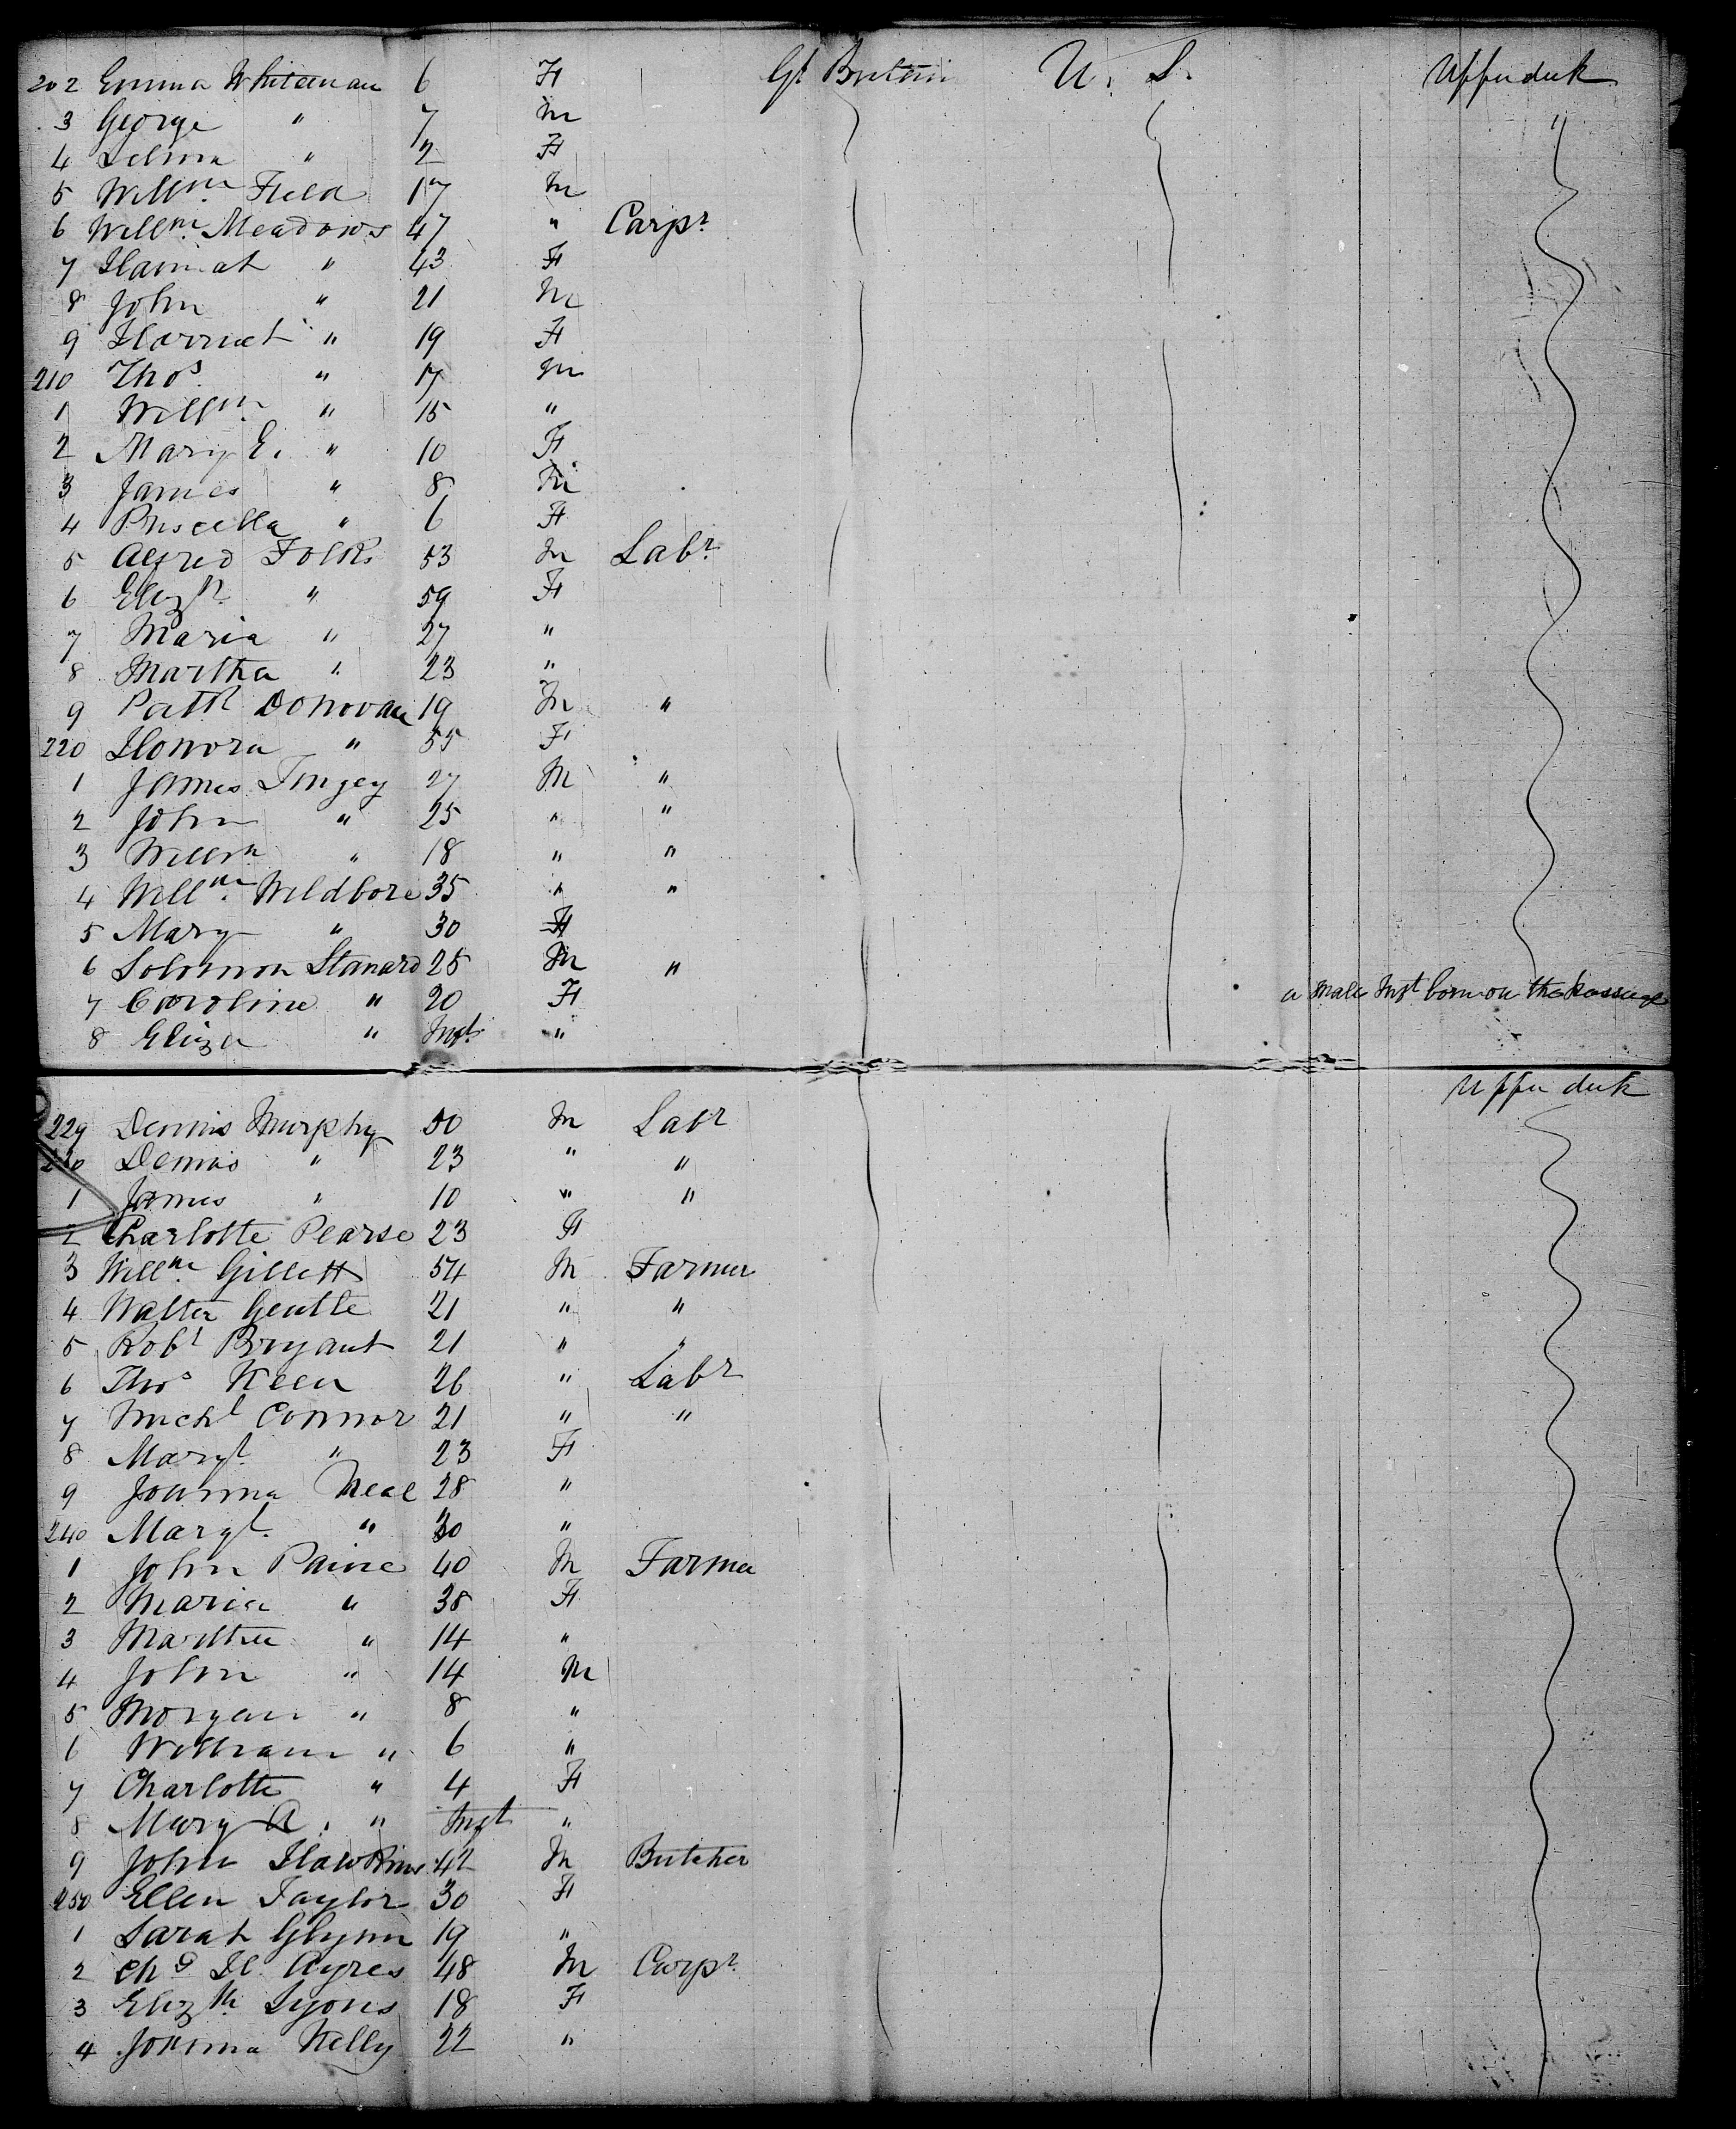 202 Emma Whiteman 6 F Gt Britain U. S. Upper deck
3 George " 7 M "
4 Selina " 2 F
5 Willm. Field 17 M
6 Willm. Meadows 47 " Carpr.
7 Hannah " 43 F
8 John " 21 M
9 Harriet " 19 F
210 Thos. " 17 M
1 Willm. " 15 "
2 Mary E. " 10 F
3 James " 8 M
4 Priscilla " 6 F
5 Alfred Folks 53 M Labr.
6 Elizth. " 59 F
7 Maria " 27 "
8 Martha " 23 "
9 Patk Donovan 19 M "
220 Honora " 55 F
1 James Tingey 27 M "
2 John " 25 " "
3 Willm " 18 " "
4 Willm. Wildbore 35 " "
5 Mary " 30 F
6 Solomon Stanard 25 M "
7 Caroline " 20 F a male Inft born on the passage
8 Eliza " Inft. "
Upper deck
229 Dennis Murphy 50 M Labr
230 Dennis " 23 " "
1 James " 10 " "
2 Charlotte Pearse 23 F
3 Willm. Gillett 54 M Farmer
4 Walter Gentle 21 " "
5 Robt Bryant 21 " "
6 Thos Keen 26 " Labr
7 Michl Connor 21 " "
8 Margt. " 23 F
9 Joanna Neal 28 "
240 Margt. " 30 "
1 John Paine 40 M Farmer
2 Maria " 38 F
3 Martha " 14 "
4 John " 14 M
5 Morgan " 8 "
6 William " 6 "
7 Charlotte " 4 F
8 Mary A. " Inft "
9 John Hawkins 42 M Butcher
250 Ellen Taylor 30 F
1 Sarah Glynn 19 "
2 Chs H. Ayres 48 M Carpr.
3 Elizth Lyons 18 F
4 Joanna Kelly 22 "